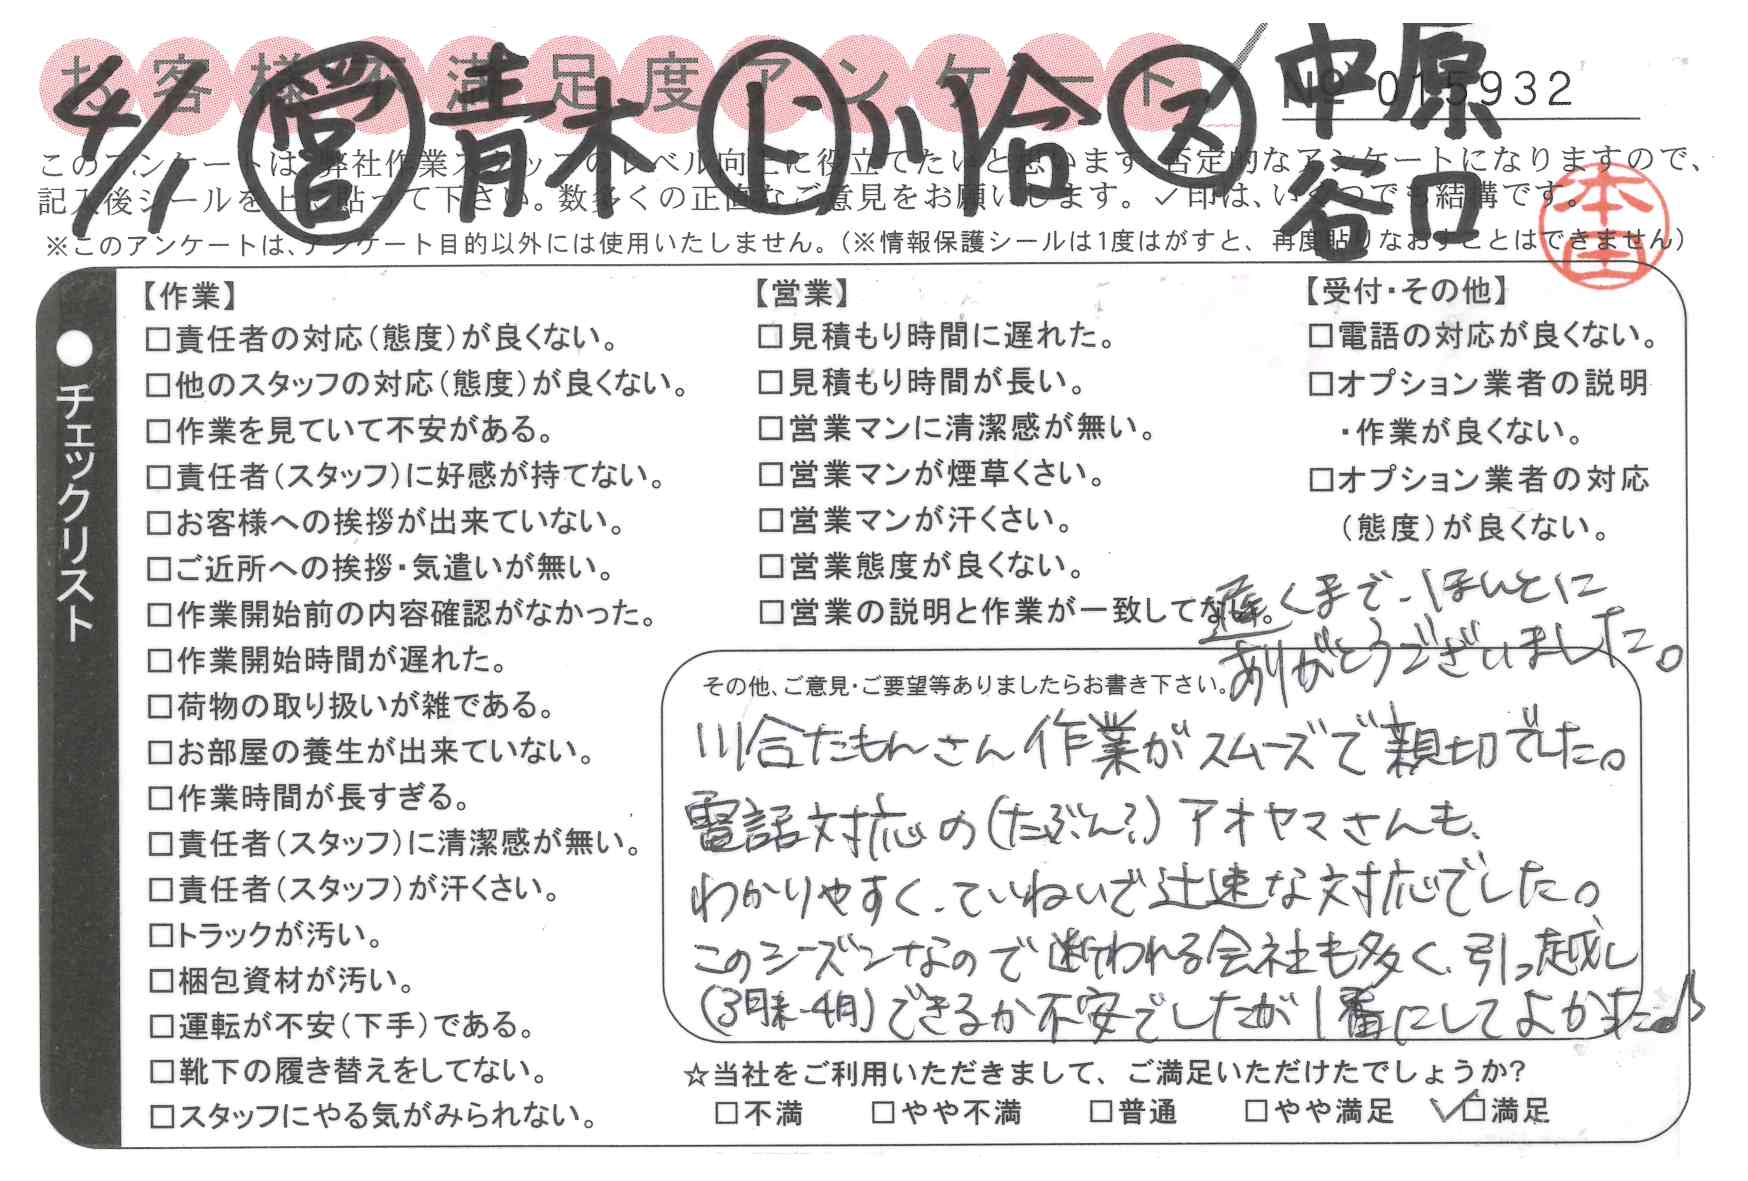 お客様不満足度アンケート
4/1 営 青木 ト 川合 ス 中原
谷口
№ 015932
このアンケートは、弊社作業スタッフのレベル向上に役立てたいと思います。否定的なアンケートになりますので、
記入後シールを上に貼って下さい。数多くの正直なご意見をお願いします。✓印は、いくつでも結構です。
※このアンケートは、アンケート目的以外には使用いたしません。(※情報保護シールは1度はがすと、再度貼りなおすことはできません)
本田
●チェックリスト
【作業】
□責任者の対応(態度)が良くない。
□他のスタッフの対応(態度)が良くない。
□作業を見ていて不安がある。
□責任者(スタッフ)に好感が持てない。
□お客様への挨拶が出来ていない。
□ご近所への挨拶・気遣いが無い。
□作業開始前の内容確認がなかった。
□作業開始時間が遅れた。
□荷物の取り扱いが雑である。
□お部屋の養生が出来ていない。
□作業時間が長すぎる。
□責任者(スタッフ)に清潔感が無い。
□責任者(スタッフ)が汗くさい。
□トラックが汚い。
□梱包資材が汚い。
□運転が不安(下手)である。
□靴下の履き替えをしてない。
□スタッフにやる気がみられない。
【営業】
□見積もり時間に遅れた。
□見積もり時間が長い。
□営業マンに清潔感が無い。
□営業マンが煙草くさい。
□営業マンが汗くさい。
□営業態度が良くない。
□営業の説明と作業が一致してない。
【受付・その他】
□電語の対応が良くない。
□オプション業者の説明
・作業が良くない。
□オプション業者の対応
(態度)が良くない。
遅くまで、ほんとに
ありがとうございました。
その他、ご意見・ご要望等ありましたらお書き下さい。
川合たもんさん作業がスムーズで親切でした。
電話対応の(たぶん?)アオヤマさんも、
わかりやすく、ていねいで迅速な対応でした。
このシーズンなので断われる会社も多く、引っ越し
(3月末-4月)できるか不安でしたが1番にしてよかった♪
☆当社をご利用いただきまして、ご満足いただけたでしょうか?
□不満 □やや不満 □普通 □やや満足 ✓□満足